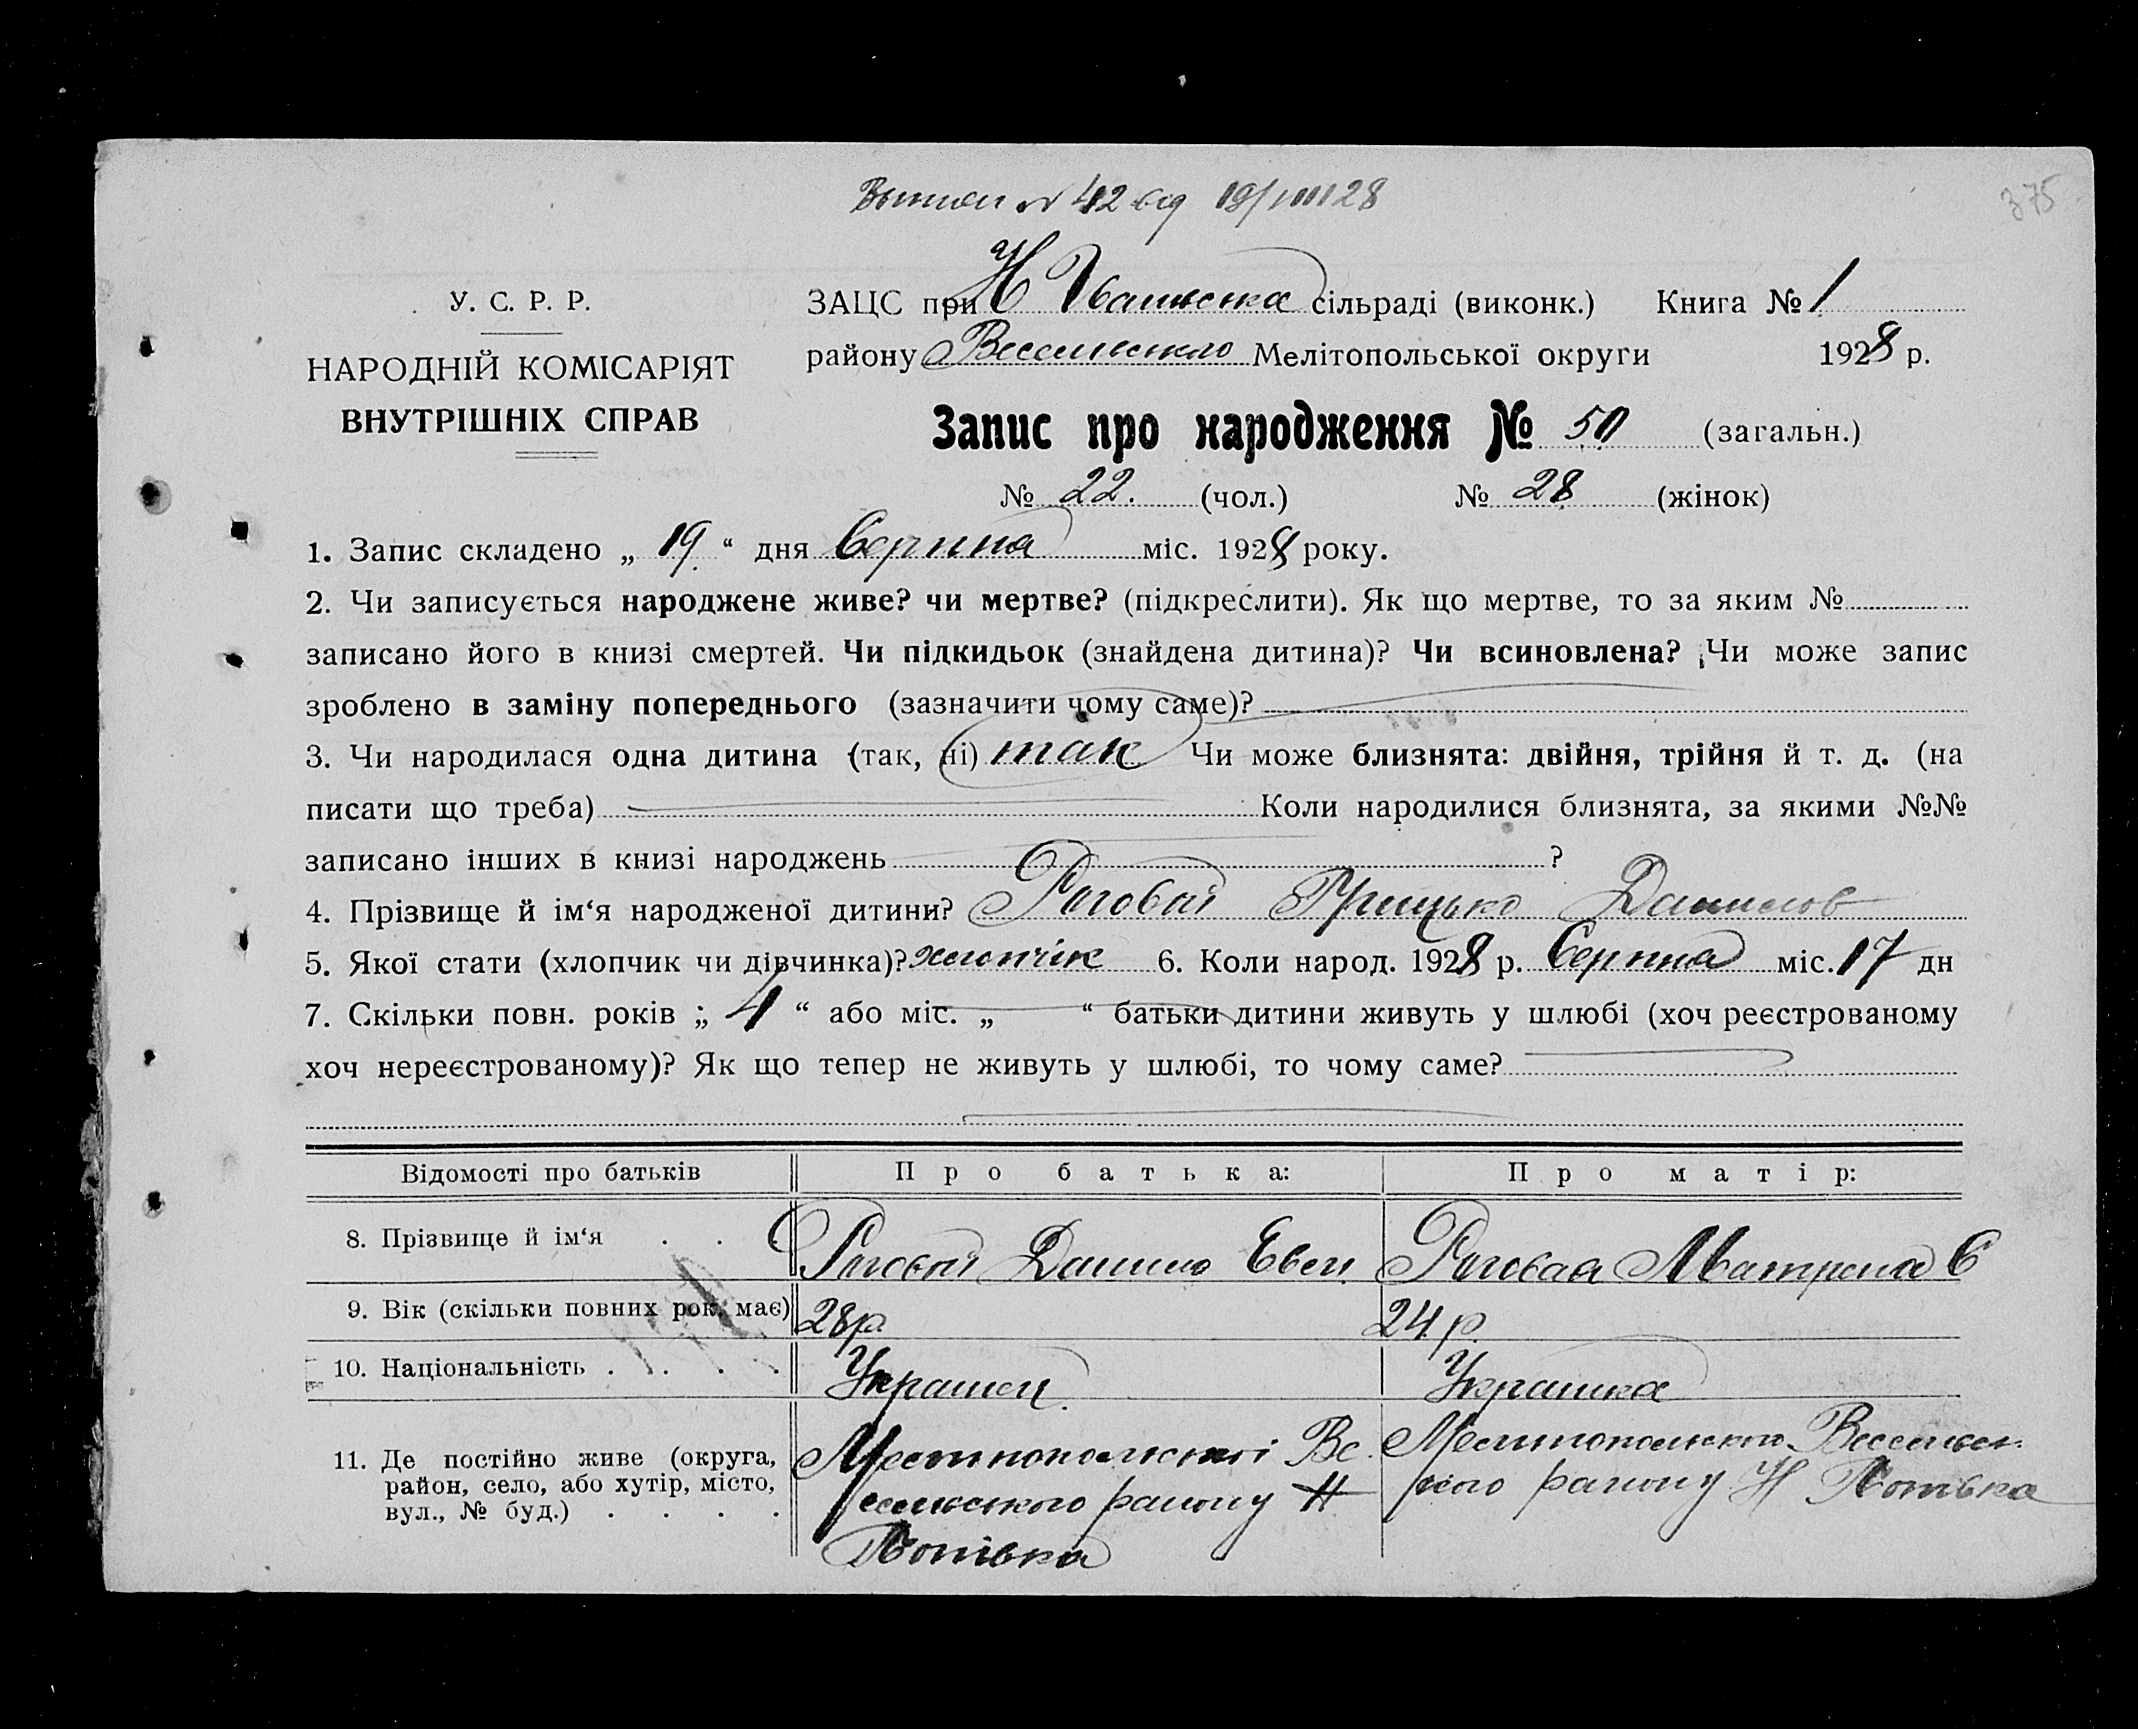 Выписи № 42 від 19/VIII 28
375
У. С. Р. Р.
НАРОДНІЙ КОМІСАРІЯТ
ВНУТРІШНІХ СПРАВ
ЗАЦС при Н Іванівська сільраді (виконк.) Книга № 1
району Веселівського Мелітопольської округи 1928 р.
Запис про народження № 50 (загальн.)
№ 22. (чол.) № 28 (жінок)
1. Запис складено „ 19 “ дня Серпня міс. 1928 року.
2. Чи записується народжене живе? чи мертве? (підкреслити). Як що мертве, то за яким №
записано його в книзі смертей. Чи підкидьок (знайдена дитина)? Чи всиновлена? Чи може запис
зроблено в заміну попереднього (зазначити чому саме)?
3. Чи народилася одна дитина (так, ні) так Чи може близнята: двійня, трійня й т. д. (на
писати що треба) Коли народилися близнята, за якими №№
записано інших в книзі народжень ?
4. Прізвище й ім‘я народженої дитини? Роговой Грицько Данилов
5. Якої стати (хлопчик чи дівчинка)? хлопчік 6. Коли народ. 1928 р. Серпня міс. 17 дн
7. Скільки повн. років „ 4 “ або міс. „ “ батьки дитини живуть у шлюбі (хоч реєстрованому
хоч нереєстрованому)? Як що тепер не живуть у шлюбі, то чому саме?
Відомості про батьків Про батька: Про матір:
8. Прізвище й ім‘я . . . Роговой Данило Евген. Роговая Матрена С
9. Вік (скільки повних рок. має) 28 р. 24 р.
10. Національність . . . . . Украінец Украінка
11. Де постійно живе (округа,
район, село, або хутір, місто,
вул., № буд.) . . . .
Мелитопольскоі Ве
сельського району Н
Мелитопольского Весельс
кого району Н